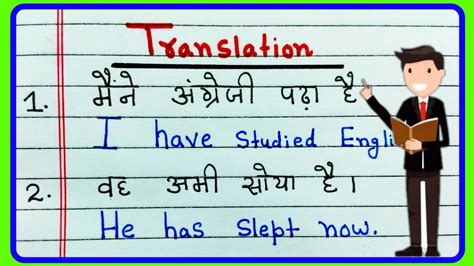 Translation
1. मैंने अंग्रेजी पढ़ा है
I have studied Engli
2. वह अभी सोया है।
He has slept now.